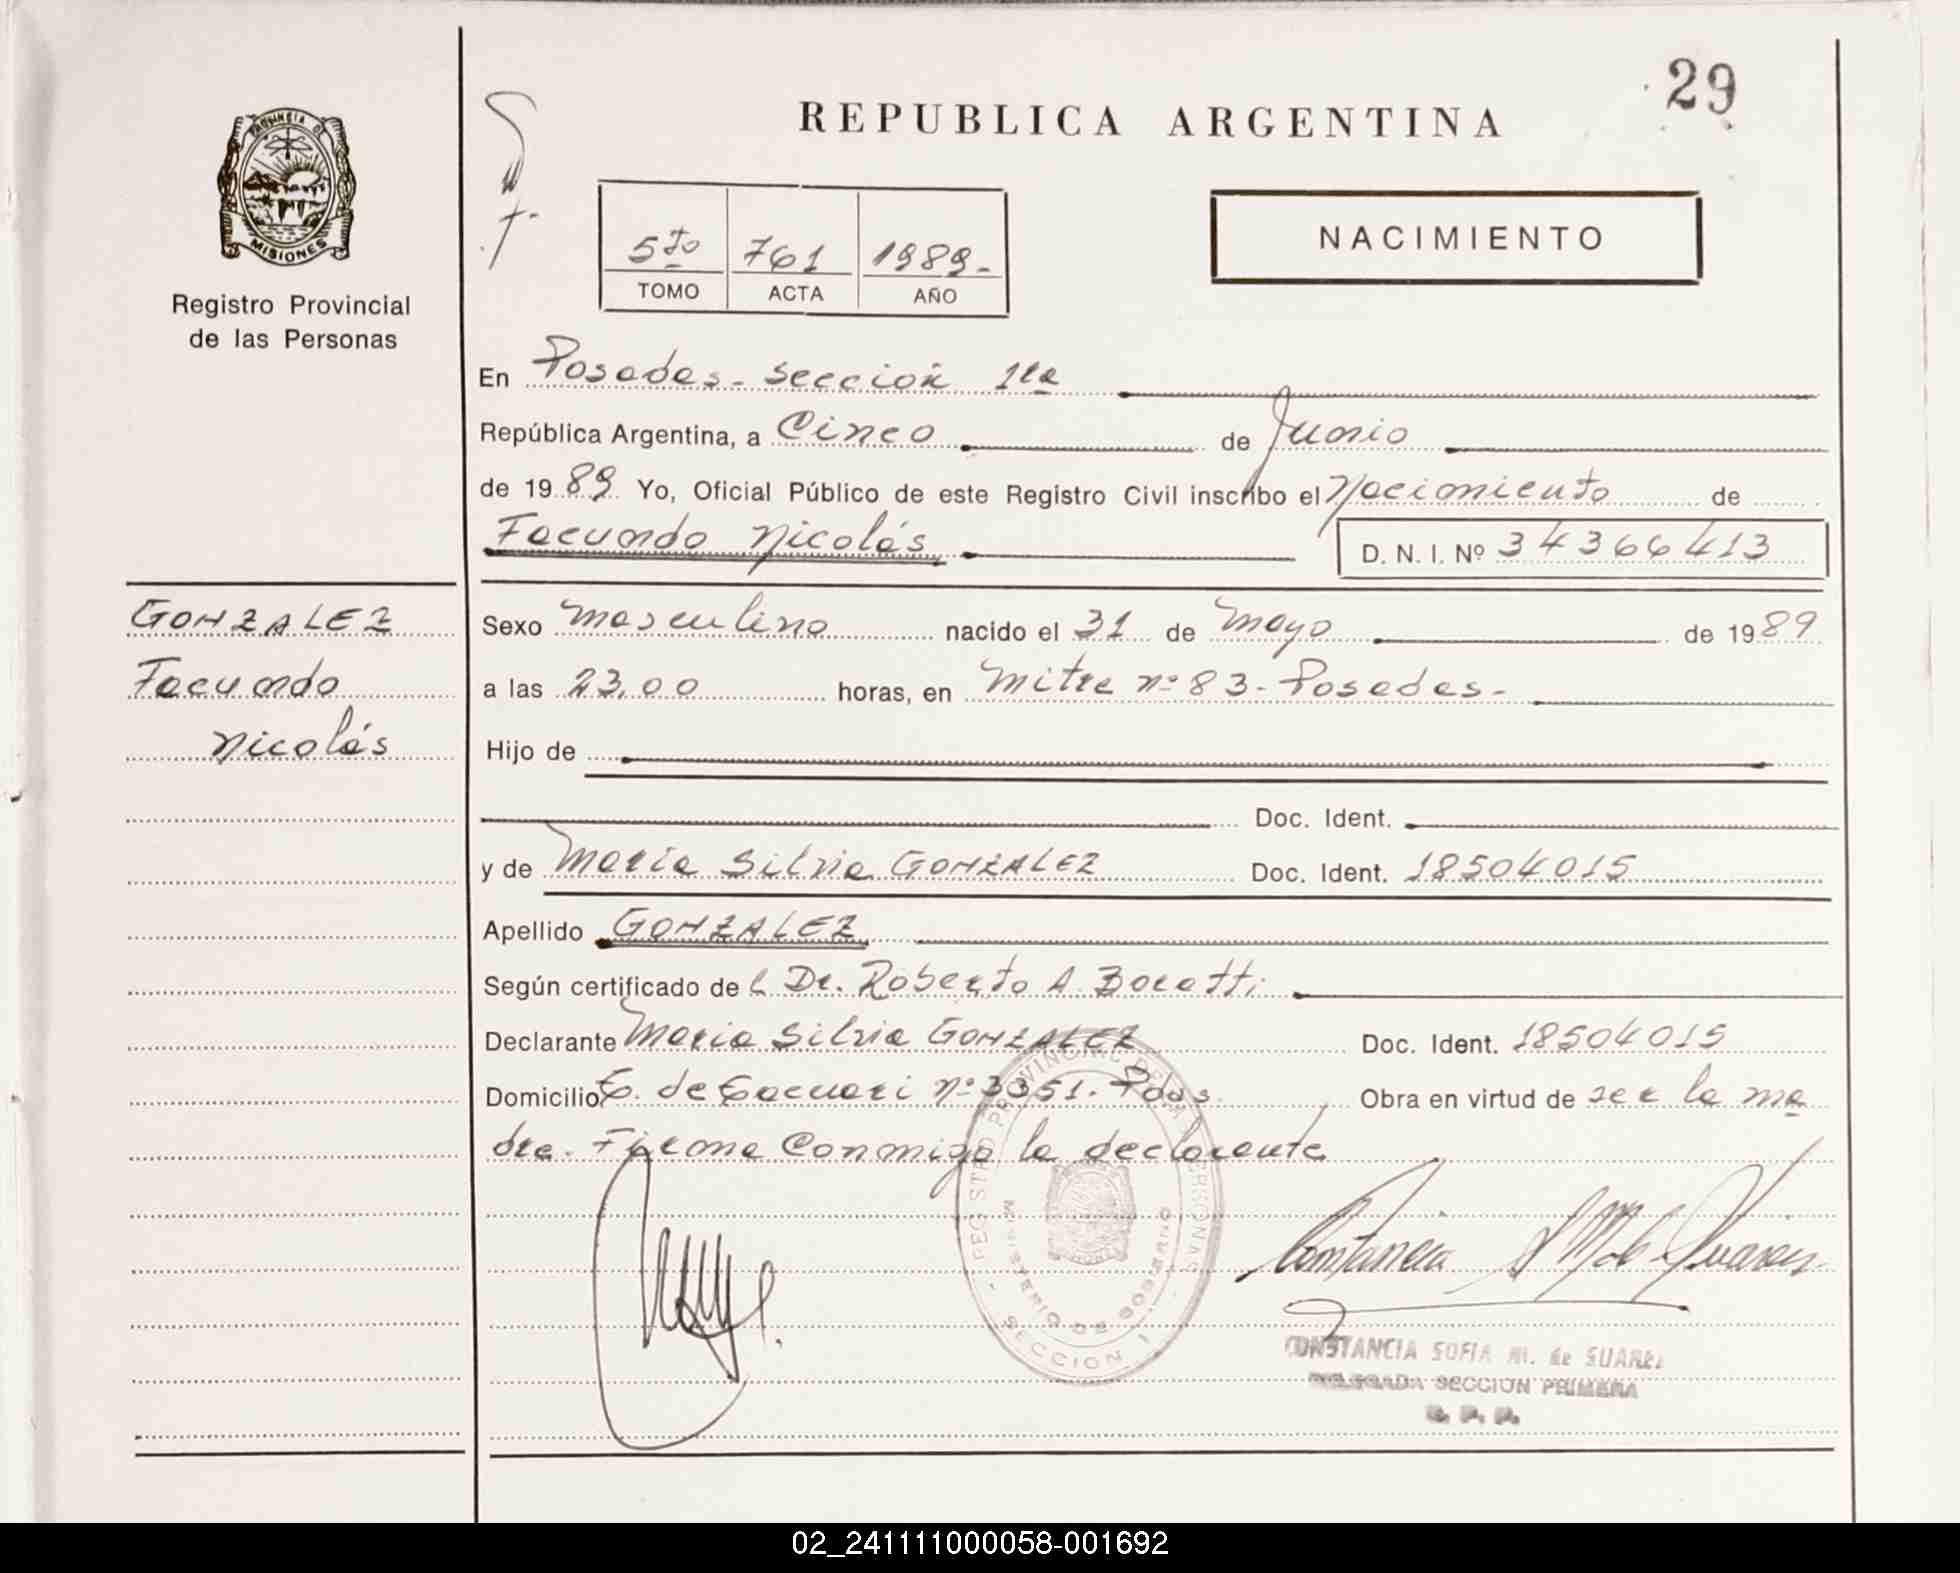 29
REPUBLICA ARGENTINA
PROVINCIA DE
MISIONES
Registro Provincial
de las Personas
NACIMIENTO
5to 761 1989-
TOMO ACTA AÑO
En Posadas - Sección 1ra
República Argentina, a Cinco de Junio
de 1989 Yo, Oficial Público de este Registro Civil inscribo el Nacimiento de
Facundo Nicolás D. N. I. Nº 34366413
GONZALEZ
Facundo
Nicolás
Sexo masculino nacido el 31 de Mayo de 1989
a las 23,00 horas, en Mitre nº 83 - Posadas -
Hijo de
Doc. Ident.
y de María Silvia GONZALEZ Doc. Ident. 18504015
Apellido GONZALEZ
Según certificado del Dr. Roberto A. Bocatti
Declarante María Silvia GONZALEZ Doc. Ident. 18504015
Domicilio C. de Cacuari nº 3351. Pdas. Obra en virtud de ser la ma
dre. Firma Conmigo la declarante
REGISTRO PROVINCIAL DE LAS PERSONAS
MINISTERIO DE GOBIERNO
- SECCION I -
CONSTANCIA SOFIA M. de SUAREZ
DELEGADA SECCION PRIMERA
R. P. P.
02_241111000058-001692